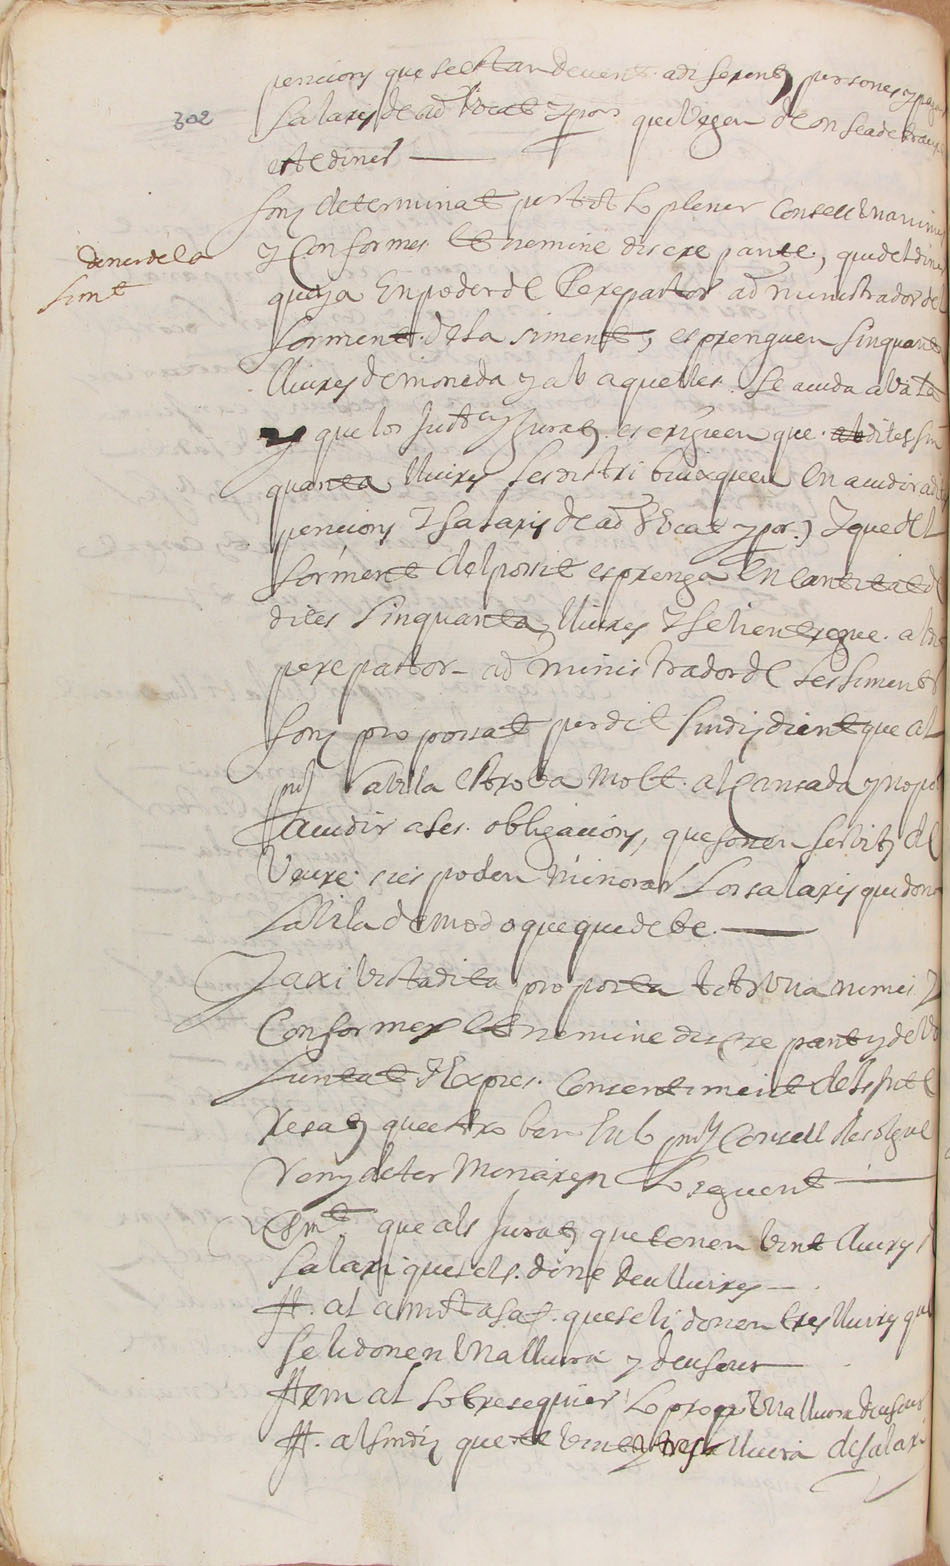 pencions que se estan devent a diferents persones y pagar
302
salaris de advocat y pror que vegen de on se a de traure
este diner
fonch determinat per tot lo plener consell unanimes
diner de la
siment
y conformes et nemine discrepante, que del diner
que ya en poder de Perepastor administrador del
forment de la siment, es prenguen sinquanta
lliures de moneda y ab aquelles se acuda a
y que los Justa y Jurats es exiguen que ab dites sin
quanta lliures se distribuixquen en acudir a dites
pencions y salaris de advocat y pror, y que del
forment del posit es prenga en cantitat de
dites sinquanta lliures y se li entregue al dit
perepastor administrador de les siments
fonch proposat per dit sindich dient que al
pnt la vila es troba molt alcansada y no pot
acudir a ses obligacions, que sonen servits de
veure si es poden minorar los salaris que dona
la vila de modo que quede be.
Y axi vista dita proposta tots unanimes y
conformes et nemine discrepant y de vo
luntat y expres consentiment dels intte
resats que es troben en lo pnt consell resolgue
ren y determinaren lo seguent
Primt que als Jurats que tenen vint lliures de
salari que sels done deu lliures
Itt. al amostasaf que se li donen tres lliures que
se li donen una lliura y deu sous
Ittem al sobresequier lo propi una lliura deu sous
Itt. al sindich que te vint y tres lliura de salari